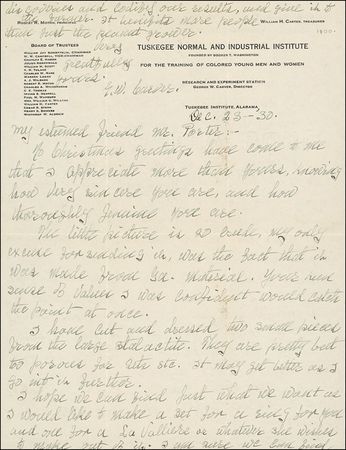 our results, and give it to
It benefits more people
just the peanut grower.
Very
gratefully
yours,
G.W. Carver.
ROBERT R. MOTON, PRINCIPAL
WILLIAM H. CARTER, TREASURER
1900-
BOARD OF TRUSTEES
TUSKEGEE NORMAL AND INDUSTRIAL INSTITUTE
FOUNDED BY BOOKER T. WASHINGTON
FOR THE TRAINING OF COLORED YOUNG MEN AND WOMEN
RESEARCH AND EXPERIMENT STATION
GEORGE W. CARVER, DIRECTOR
TUSKEGEE INSTITUTE, ALABAMA
Dec. 23-30.
My esteemed friend Mr. Porter:-
No Christmas greetings have come to me
that I appreciate more than yours, knowing
how very sincere you are, and how
thoroughly genuine you are.
The little picture is so crude, my only
excuse for sending it, was the fact that it
was made from Ga. material. Your keen
sense of values I was confident would catch
the point at once.
I have cut and dressed two small pieces
from the large stalactite. They are pretty but
too porous for sets etc. It may get better as I
go into it further.
I hope we can find just what we want as
I would like to make a set for a ring for you
and one for a La Valliere or whatever she wishes
to make out of it. I am sure we can find